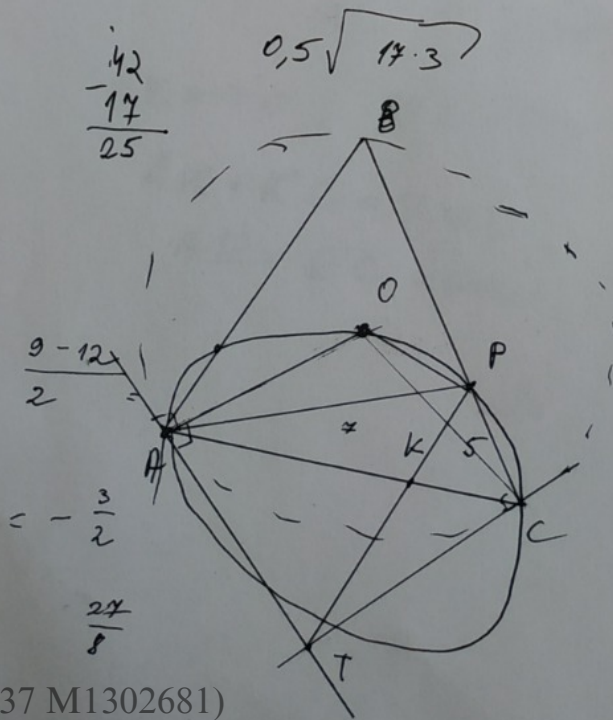 42
- 17
25
0,5 √17·3
B
O
P
9 - 12
2
=
A
7
K
5
C
= - 3/2
27/8
T
37 M1302681)